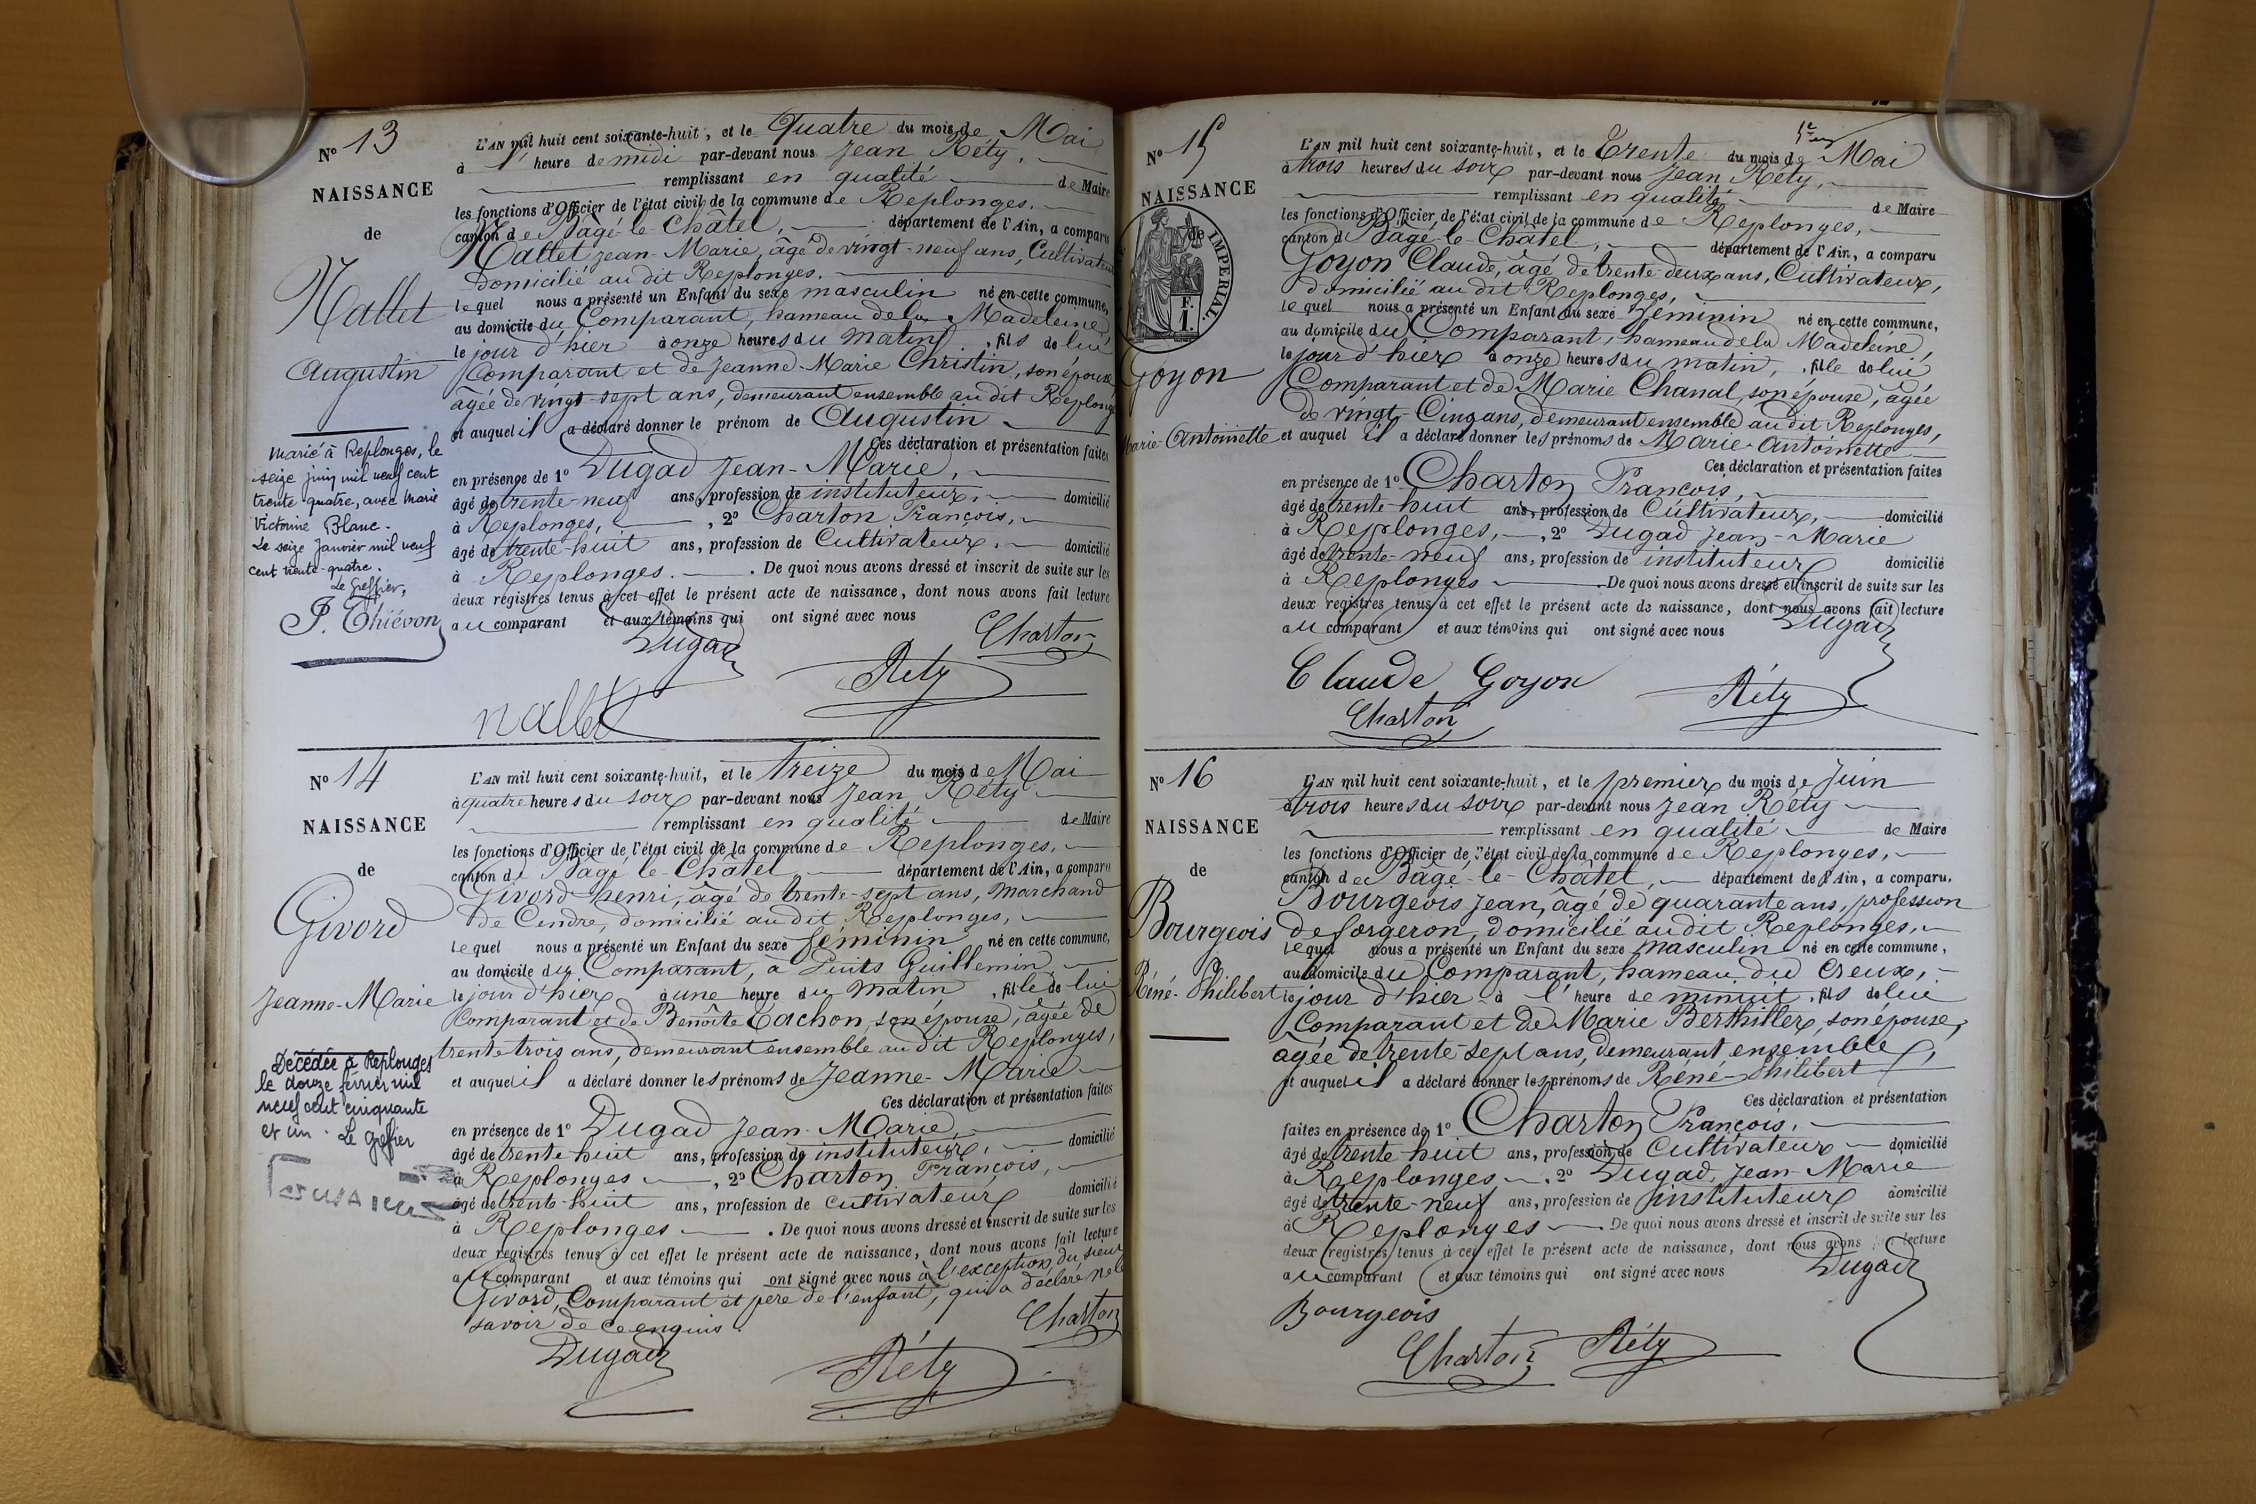 N° 13
NAISSANCE
de
Nallet
Augustin
Marié à Replonges, le
seize juin mil neuf cent
trente quatre, avec Marie
Victorine Blanc.
Le seize Janvier mil neuf
cent trente-quatre.
Le Greffier,
P. Thiévon
L'AN mil huit cent soixante-huit, et le Quatre du mois de Mai
à 1' heure de midi par-devant nous Jean Réty,
remplissant en qualité de Maire
les fonctions d'Officier de l'état civil de la commune de Replonges,
canton de Bâgé-le-Châtel, département de l'Ain, a comparu
Nallet Jean-Marie, âgé de vingt-neuf ans, Cultivateur
domicilié au dit Replonges.
lequel nous a présenté un Enfant du sexe masculin né en cette commune,
au domicile du Comparant, hameau de la Madeleine,
le jour d'hier à onze heures du matin, fils de lui
Comparant et de Jeanne-Marie Christin, son épouse
âgée de vingt-sept ans, demeurant ensemble au dit Replonges
et auquel il a déclaré donner le prénom de Augustin
Ces déclaration et présentation faites
en présence de 1° Dugad Jean-Marie,
âgé de trente-neuf ans, profession de instituteur, domicilié
à Replonges, , 2° Charton François,
âgé de trente-huit ans, profession de Cultivateur, domicilié
à Replonges. . De quoi nous avons dressé et inscrit de suite sur les
deux registres tenus à cet effet le présent acte de naissance, dont nous avons fait lecture
au comparant et aux témoins qui ont signé avec nous
Dugad Charton
Réty
nallet
N° 14
NAISSANCE
de
Givord
Jeanne-Marie
Décédée à Replonges
le douze février mil
neuf cent cinquante
et un. Le Greffier
L'AN mil huit cent soixante-huit, et le treize du mois de Mai
à quatre heures du soir par-devant nous Jean Réty
remplissant en qualité de Maire
les fonctions d'Officier de l'état civil de la commune de Replonges,
canton de Bâgé-le-Châtel, département de l'Ain, a comparu
Givord henri, âgé de trente-sept ans, marchand
de Cendre, domicilié au dit Replonges,
lequel nous a présenté un Enfant du sexe féminin né en cette commune,
au domicile du Comparant, à Puits Guillemin,
le jour d'hier à une heure du matin, fille de lui
Comparant et de Benoîte Cachon, son épouse, âgée de
trente trois ans, demeurant ensemble au dit Replonges,
et auquel il a déclaré donner les prénoms de Jeanne-Marie
Ces déclaration et présentation faites
en présence de 1° Dugad Jean-Marie,
âgé de trente huit ans, profession de instituteur, domicilié
à Replonges , 2° Charton François,
âgé de trente-huit ans, profession de cultivateur domicilié
à Replonges . De quoi nous avons dressé et inscrit de suite sur les
deux registres tenus à cet effet le présent acte de naissance, dont nous avons fait lecture
au comparant et aux témoins qui ont signé avec nous à l'exception du sieur
Givord, Comparant et père de l'enfant, qui a déclaré ne le
savoir de ce enquis.
Charton
Dugad
Réty
N° 15
NAISSANCE
de
IMPERIAL
F. 1.
Goyon
Marie-Antoinette
L'AN mil huit cent soixante-huit, et le Trente du mois de Mai
à trois heures du soir par-devant nous Jean Réty,
remplissant en qualité de Maire
les fonctions d'Officier de l'état civil de la commune de Replonges,
canton de Bâgé-le-Châtel, département de l'Ain, a comparu
Goyon Claude, âgé de trente-deux ans, Cultivateur,
domicilié au dit Replonges,
lequel nous a présenté un Enfant du sexe féminin né en cette commune,
au domicile du Comparant, hameau de la Madeleine,
le jour d'hier à onze heures du matin, fille de lui
Comparant et de Marie Chanal, son épouse, âgée
de vingt-Cinq ans, demeurant ensemble au dit Replonges,
et auquel il a déclaré donner les prénoms de Marie-Antoinette
Ces déclaration et présentation faites
en présence de 1° Charton François,
âgé de trente huit ans, profession de Cultivateur, domicilié
à Replonges, , 2° Dugad Jean-Marie
âgé de trente-neuf ans, profession de instituteur domicilié
à Replonges . De quoi nous avons dressé et inscrit de suite sur les
deux registres tenus à cet effet le présent acte de naissance, dont nous avons fait lecture
au comparant et aux témoins qui ont signé avec nous
Dugad
Claude Goyon
Charton Réty
N° 16
NAISSANCE
de
Bourgeois
Réné-Philibert
L'AN mil huit cent soixante-huit, et le premier du mois de Juin
à trois heures du soir par-devant nous Jean Réty
remplissant en qualité de Maire
les fonctions d'Officier de l'état civil de la commune de Replonges,
canton de Bâgé-le-Châtel, département de l'Ain, a comparu.
Bourgeois Jean, âgé de quarante ans, profession
de forgeron, domicilié au dit Replonges,
lequel nous a présenté un Enfant du sexe masculin né en cette commune,
au domicile du Comparant, hameau du Creux,
le jour d'hier à l' heure de minuit, fils de lui
Comparant et de Marie Berthiller, son épouse,
âgée de trente-sept ans, demeurant ensemble,
et auquel il a déclaré donner les prénoms de Réné-Philibert
Ces déclaration et présentation
faites en présence de 1° Charton François,
âgé de trente-huit ans, profession de Cultivateur domicilié
à Replonges , 2° Dugad, Jean-Marie
âgé de trente-neuf ans, profession de instituteur domicilié
à Replonges De quoi nous avons dressé et inscrit de suite sur les
deux registres tenus à cet effet le présent acte de naissance, dont nous avons lecture
au comparant et aux témoins qui ont signé avec nous
Dugad
Bourgeois
Charton Réty